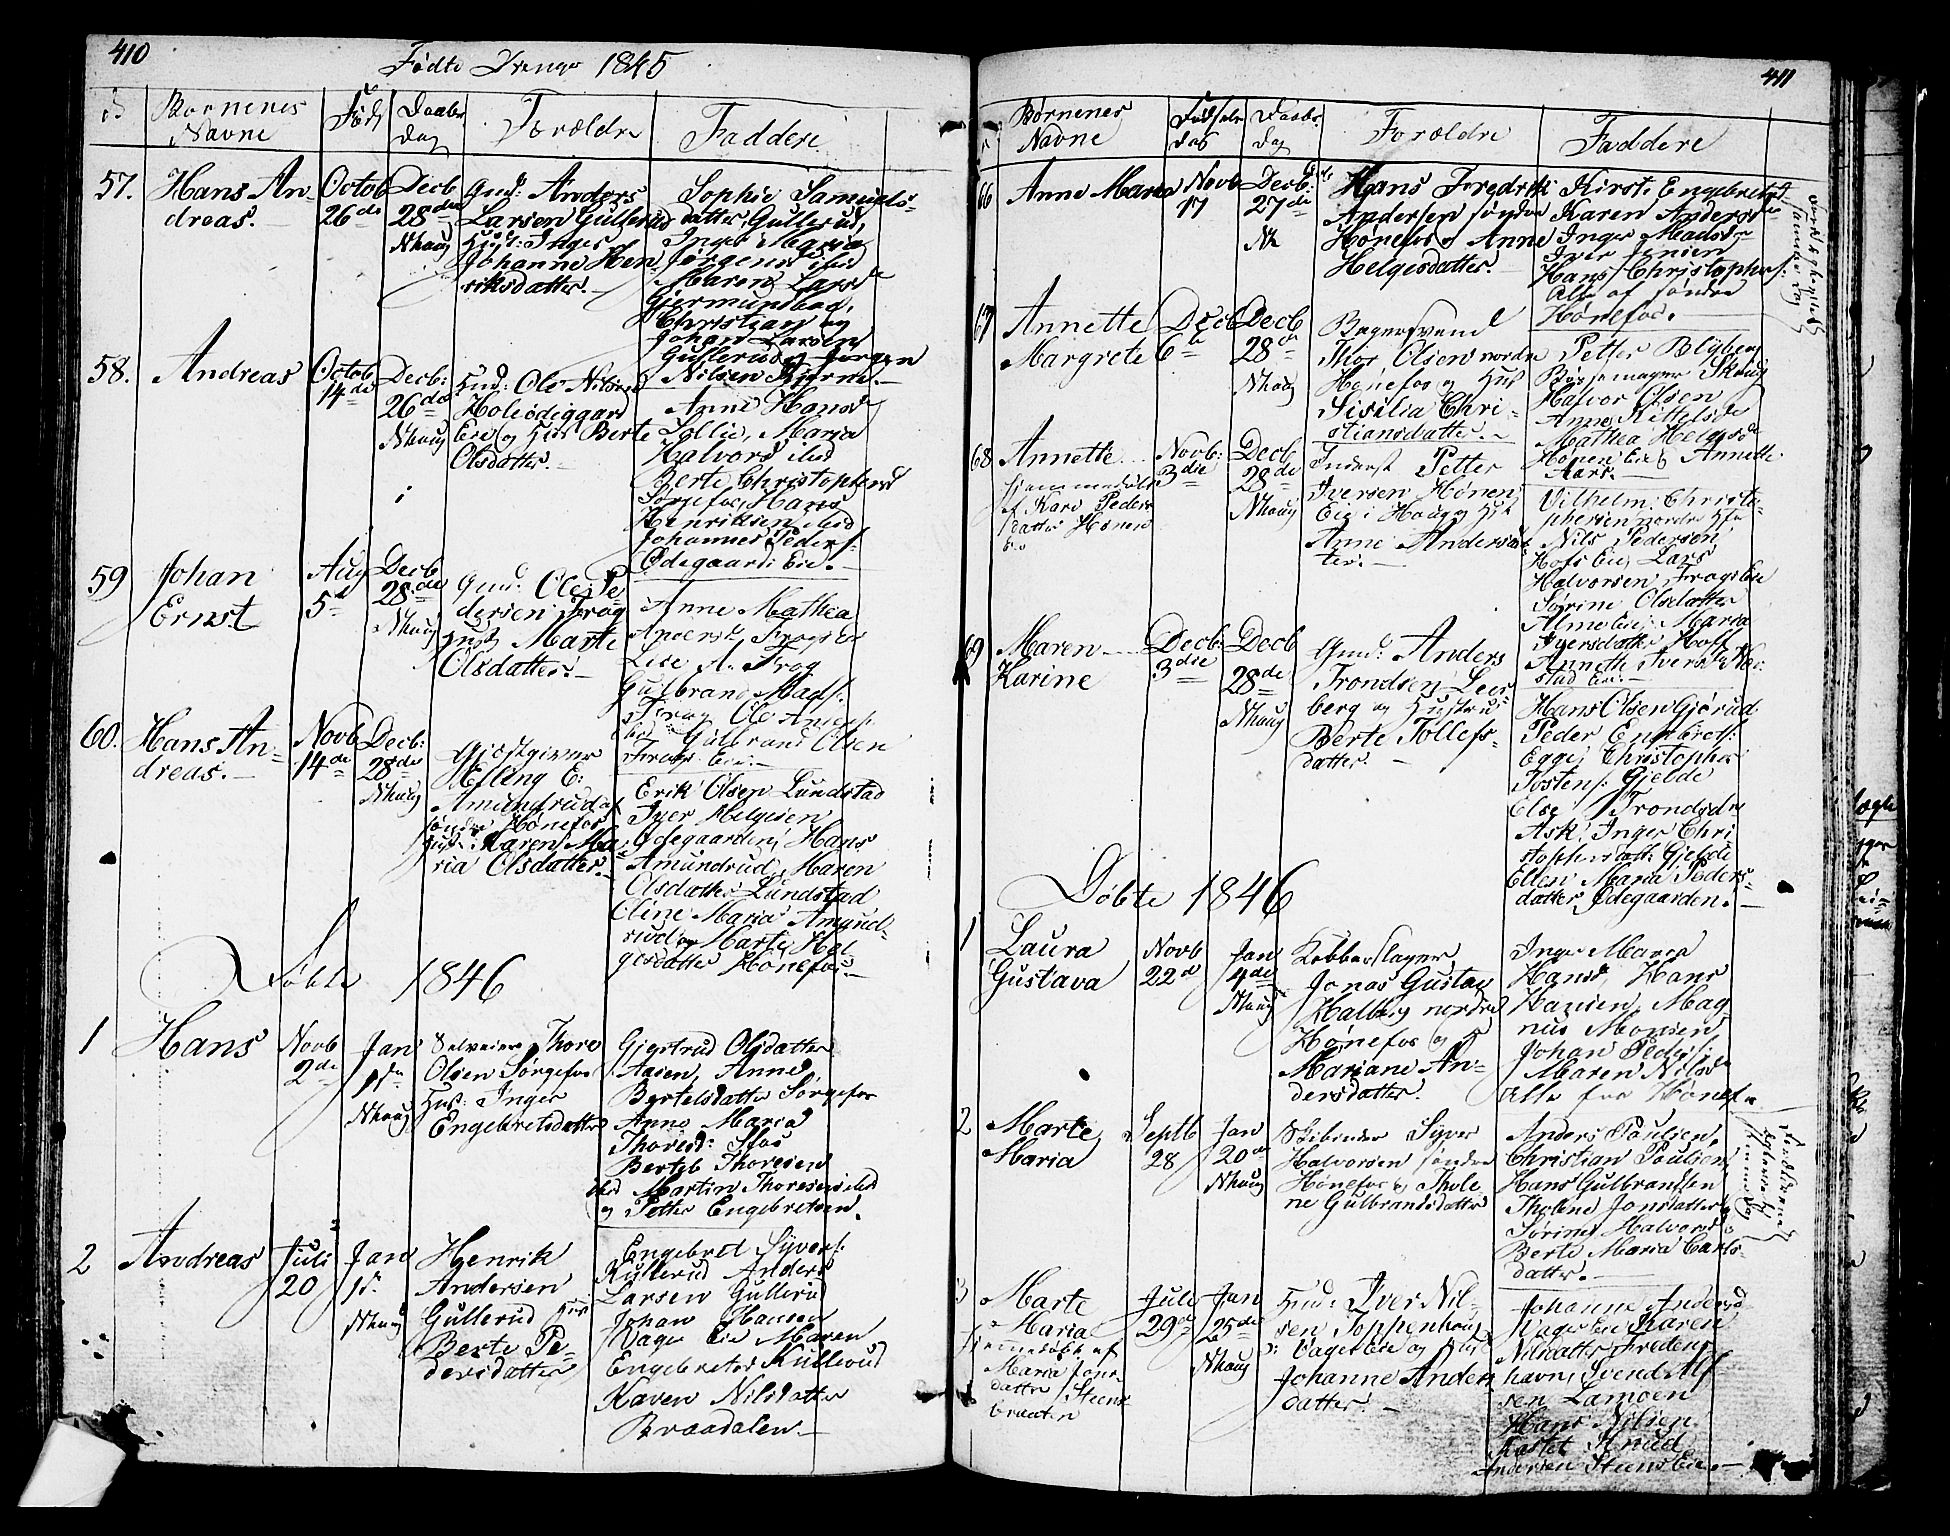 410
Fødte Drenge 1845
Børnenes
Navne
Fød
Daabs
Dag
Forældre
Faddere
57.
Hans An-
dreas.
Octob
26de
Decb
28de
Nhaug
Gmd: Anders
Larsen Gullerud
Hust: Inger
Johanne Hen
riksdatter.
Sophie Samuels-
datter Gullerud,
Inger Maria
Jørgens ibid
Maren Lars
Gjermundbod,
Christian og
Johan Larsen
Gullerud og Jørgen
Nilsen
58.
Andreas
Octob
14de
Decb:
26de
Nhaug
Hmd: Ole Nilsen
Eie og Hust Berte
Olsdatter.
Anne Hansd
Lollie, Maria
Halvors ibid
Berte Christophersd
Sørgefos, Hans
Henriksen ibid
Johannes Peders:
Ødegaards Eie.
59
Johan
Ernst
Aug
5te
Decb
28de
Nhaug
Gmd: Ole Pe
dersen Frog
Hust Marte
Olsdatter.
Anne Mathea
Anders Frogs Eie
Lise A. Frog
Gulbrand Mads:
Frog Ole Anders:
ibid Gulbrand Olsen
Frogs Eie.
60.
Hans An-
dreas.
Novb
14de
Decb:
28de
Nhaug
Gjestgiver
Elling E:
Amundrud af
søndre Hønefos
Hust: Karen Ma-
ria Olsdatter.
Erik Olsen Lundstad
Iver Helgesen
Ødegaarden, Hans
Amundrud, Maren
Olsdatter Lundstad
Oline Maria Amund-
rud og Marte Hel
gesdatter Hønefos.
Døbte 1846
1
Hans
Novb
2de
Jan
1ste
Nhaug
Selveier Thore
Olsen Sørgefos
Hust: Inger
Engebretsdatter
Gjertrud Olsdatter
Aasen, Anne
Bertelsdatter Sørgefos
Anne Maria
Thoresd:
Berteb Thoresen
ibid Martin Thoresen ibid
og Petter Engebretsen.
2
Andreas
Juli
20
Jan
1ste
Nhaug
Henrik
Andersen
Gullerud Hust
Berte Pe-
dersdatter
Engebret Syvers:
Kullerud Anders
Larsen Gullerud
Johan Hansen
Vager Eie Maren
Engebrets Kullerud
Karen Nilsdatter
Braadalen.
411
Børnenes
Navne
Fødsels
Dag
Daabs
Dag
Forældre
Faddere
66
Anne Maria
Novb
17
Decb:
27de
Nh
Hans Fredrik
Andersen søndre
Hønefos og Anne
Helgesdatter.
Kirsti Engebretsd
Karen Anders
Inger Madsd
Iver Jensen
Hans Christophers:
Alle af søndre
Hønefos.
67
Annette
Margrete
Decb
6te
Decb
28de
Nhaug
Bagersvend
Thor Olsen nordre
Hønefos og Hust
Sisilia Chri-
stiansdatter.
Petter Blyberg
Børsemager Skoug
Halvor Olsen
Anne Kittelsd
Mathea Helgesd
Hønen Eie og Annette
Aars.
68
Annette
hjemmedøbt
af Kari Peders
datter Hønen
Eie
Novb:
3die
Decb
28de
Nhaug
Inderst Petter
Iversen Hønen
Eie i Haug og Hust
Anne Andersdat
ter.
Vilhelm Christo
phersen nordre Hfos
Nils Pedersen
Hofs Eie, Lars
Halvorsen Frogs Eie
Sørine Olsdatter
Alme Eie, Maria
Iversdatter Hofs
Annette Iversd
stad Eie.
69
Maren
Karine
Decb:
3die
Decb
28de
Nhaug
Gmd: Anders
Trondsen Leer
berg og Hustru
Berte Tollefs-
datter.
Hans Olsen Gjørud
Peder Engebrets:
Egge, Christopher
Tostens: Gjelde
Else Trondsdr
Ask, Inger Chri
stophersdatt: Gjelde
Ellen Maria Peders-
datter Ødegaarden.
Døbte 1846
1
Laura
Gustava
Novb
22d
Jan
4de
Nhaug
Kobberslager
Jonas Gustav
Halberg nordre
Hønefos og H
Mariane An-
dersdatter.
Inger Maria
Hansd, Hans
Hansen, Mag
nus Monsen
Johan Peders:
Maren Nilsd
Alle fra Hønefos
2
Marte
Maria
Septb
28
Jan
20de
Nhaug
Skibinder Syver
Halvorsen søndre
Hønefos og Thole
ne Gulbrandsdatter
Anders Paulsen,
Christian Paulsen
Hans Gulbrandsen
Tholene Jonsdatter
Sørine Halvorsd
Berte Maria Carls-
datter.
3
Marte
Maria
hjemmedøbt af
Maria Jons
datter Steens
braaten
Juli
29de
Jan
25de
Nhaug
Hmd: Iver Nil-
sen Toppenhaug
Vager Eie og Hust
Johanne Anders
datter.
Johanne Andersd
Vager Eie Karen
Nilsdatter Fredens
havn, Svend Alf
sen Lamoen
Hans Nilsen
Knud
Andersen Steens Eie.